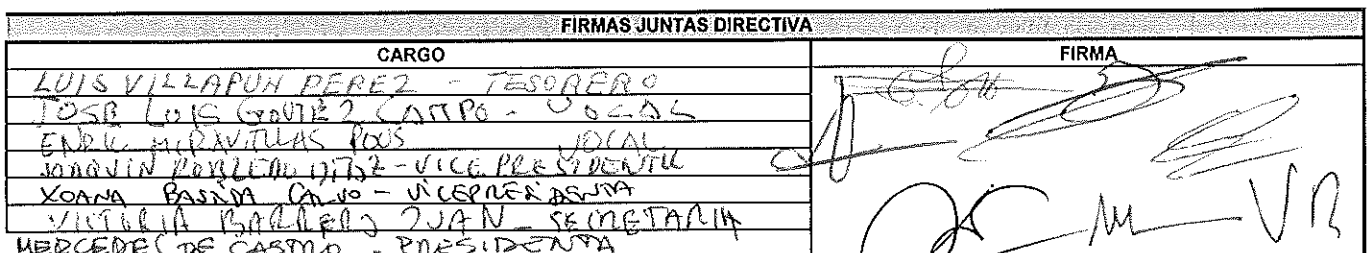 FIRMAS JUNTAS DIRECTIVA
CARGO FIRMA
LUIS VILLAFUN PEREZ - TESORERO
JOSE LUIS CAMPO - VOCAL
ENRIC MIRAVITLLAS POUS VOCAL
JOAQUIN ROBLEDO DIAZ - VICEPRESIDENTE
XOANA BASTIDA CALVO - VICEPRESIDENTA
VICTORIA BARRERO JUAN - SECRETARIA
MERCEDES DE CASTRO - PRESIDENTA
VB